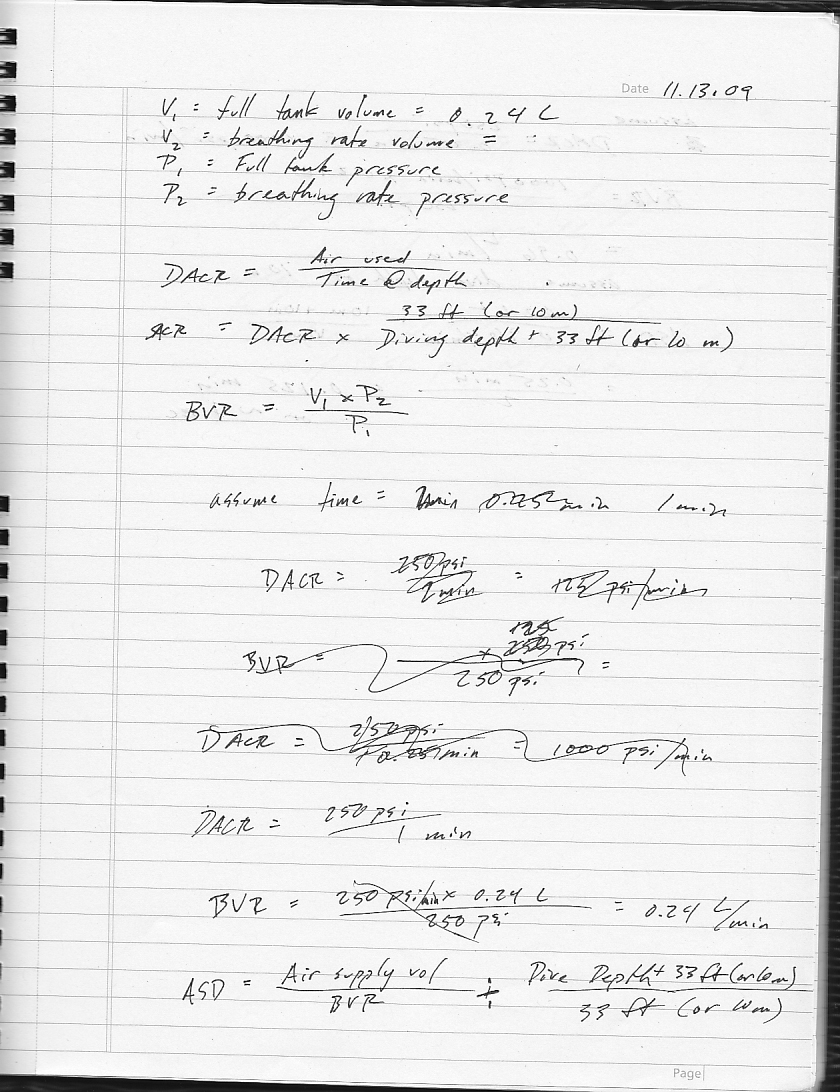 Date 11.13.09
V₁ = full tank volume = 0.24 L
V₂ = breathing rate volume =
P₁ = Full tank pressure
P₂ = breathing rate pressure
DACR = Air used / Time @ depth
33 ft (or 10 m)
ACR = DACR x Diving depth + 33 ft (or 10 m)
BVR = V₁ x P₂ / P₁
assume time = 0.25 min 1 min
DACR = 250 psi / 2 min = 125 psi/min
BVR = x 250 psi / 250 psi =
DACR = 250 psi / 0.25 min = 1000 psi/min
DACR = 250 psi / 1 min
BVR = 250 psi/min x 0.24 L / 250 psi = 0.24 L/min
ASD = Air supply vol / BVR ÷ Dive Depth + 33 ft (or 10m) / 33 ft (or 10m)
Page